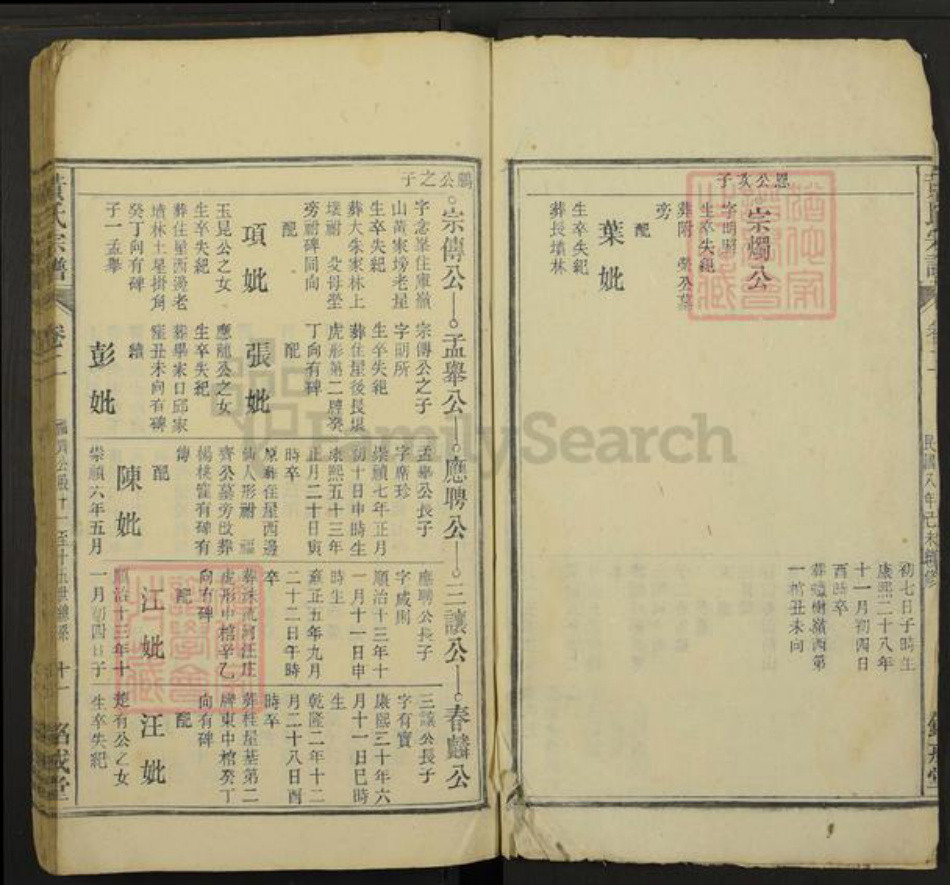 恩公亥子
宗燭公
字明照
生卒失紀
葬附 榮公墓
旁
配
葉妣
生卒失紀
葬長墳林
初七日子時生
康熙二十八年
十一月初四日
酉時卒
葬蠟樹嶺西第
一棺丑未向
民國八年己未續修
鵬公之子
宗傳公
字念峯住庫嶺
山黃家塝老屋
生卒失紀
葬大朱家林上
壞祔 父母塋
旁祔碑同向
配
項妣
玉昆公之女
生卒失紀
葬住屋西邊老
墳林土星掛角
癸丁向有碑
子一孟舉
孟舉公
宗傳公之子
字明所
生卒失紀
葬住屋後長堰
虎形第二牌癸
丁向有碑
配
張妣
應龍公之女
生卒失紀
葬畢家日邱家
窪丑未向有碑
續
彭妣
應聘公
孟舉公長子
字席珍
崇禎七年正月
初十日申時生
康熙五十三年
正月二十日寅
時卒
原葬住屋西邊
仙人形祔 福
齊公墓旁改葬
楊桃窪有碑有
傳
配
陳妣
崇禎六年五月
三讓公
應聘公長子
字咸周
順治十三年十
一月十一日申
時生
雍正五年九月
二十二日午時
卒
葬洙流河汪庄
虎形中棺辛乙
向有碑
配
江妣
順治十三年十
一月初四日子
春麟公
三讓公長子
字有實
康熙三十年六
月十一日巳時
生
乾隆二年十二
月二十八日酉
時卒
葬桂屋基第二
牌東中棺癸丁
向有碑
配
汪妣
楚有公之女
生卒失紀
黃氏宗譜
卷二
十一
FamilySearch